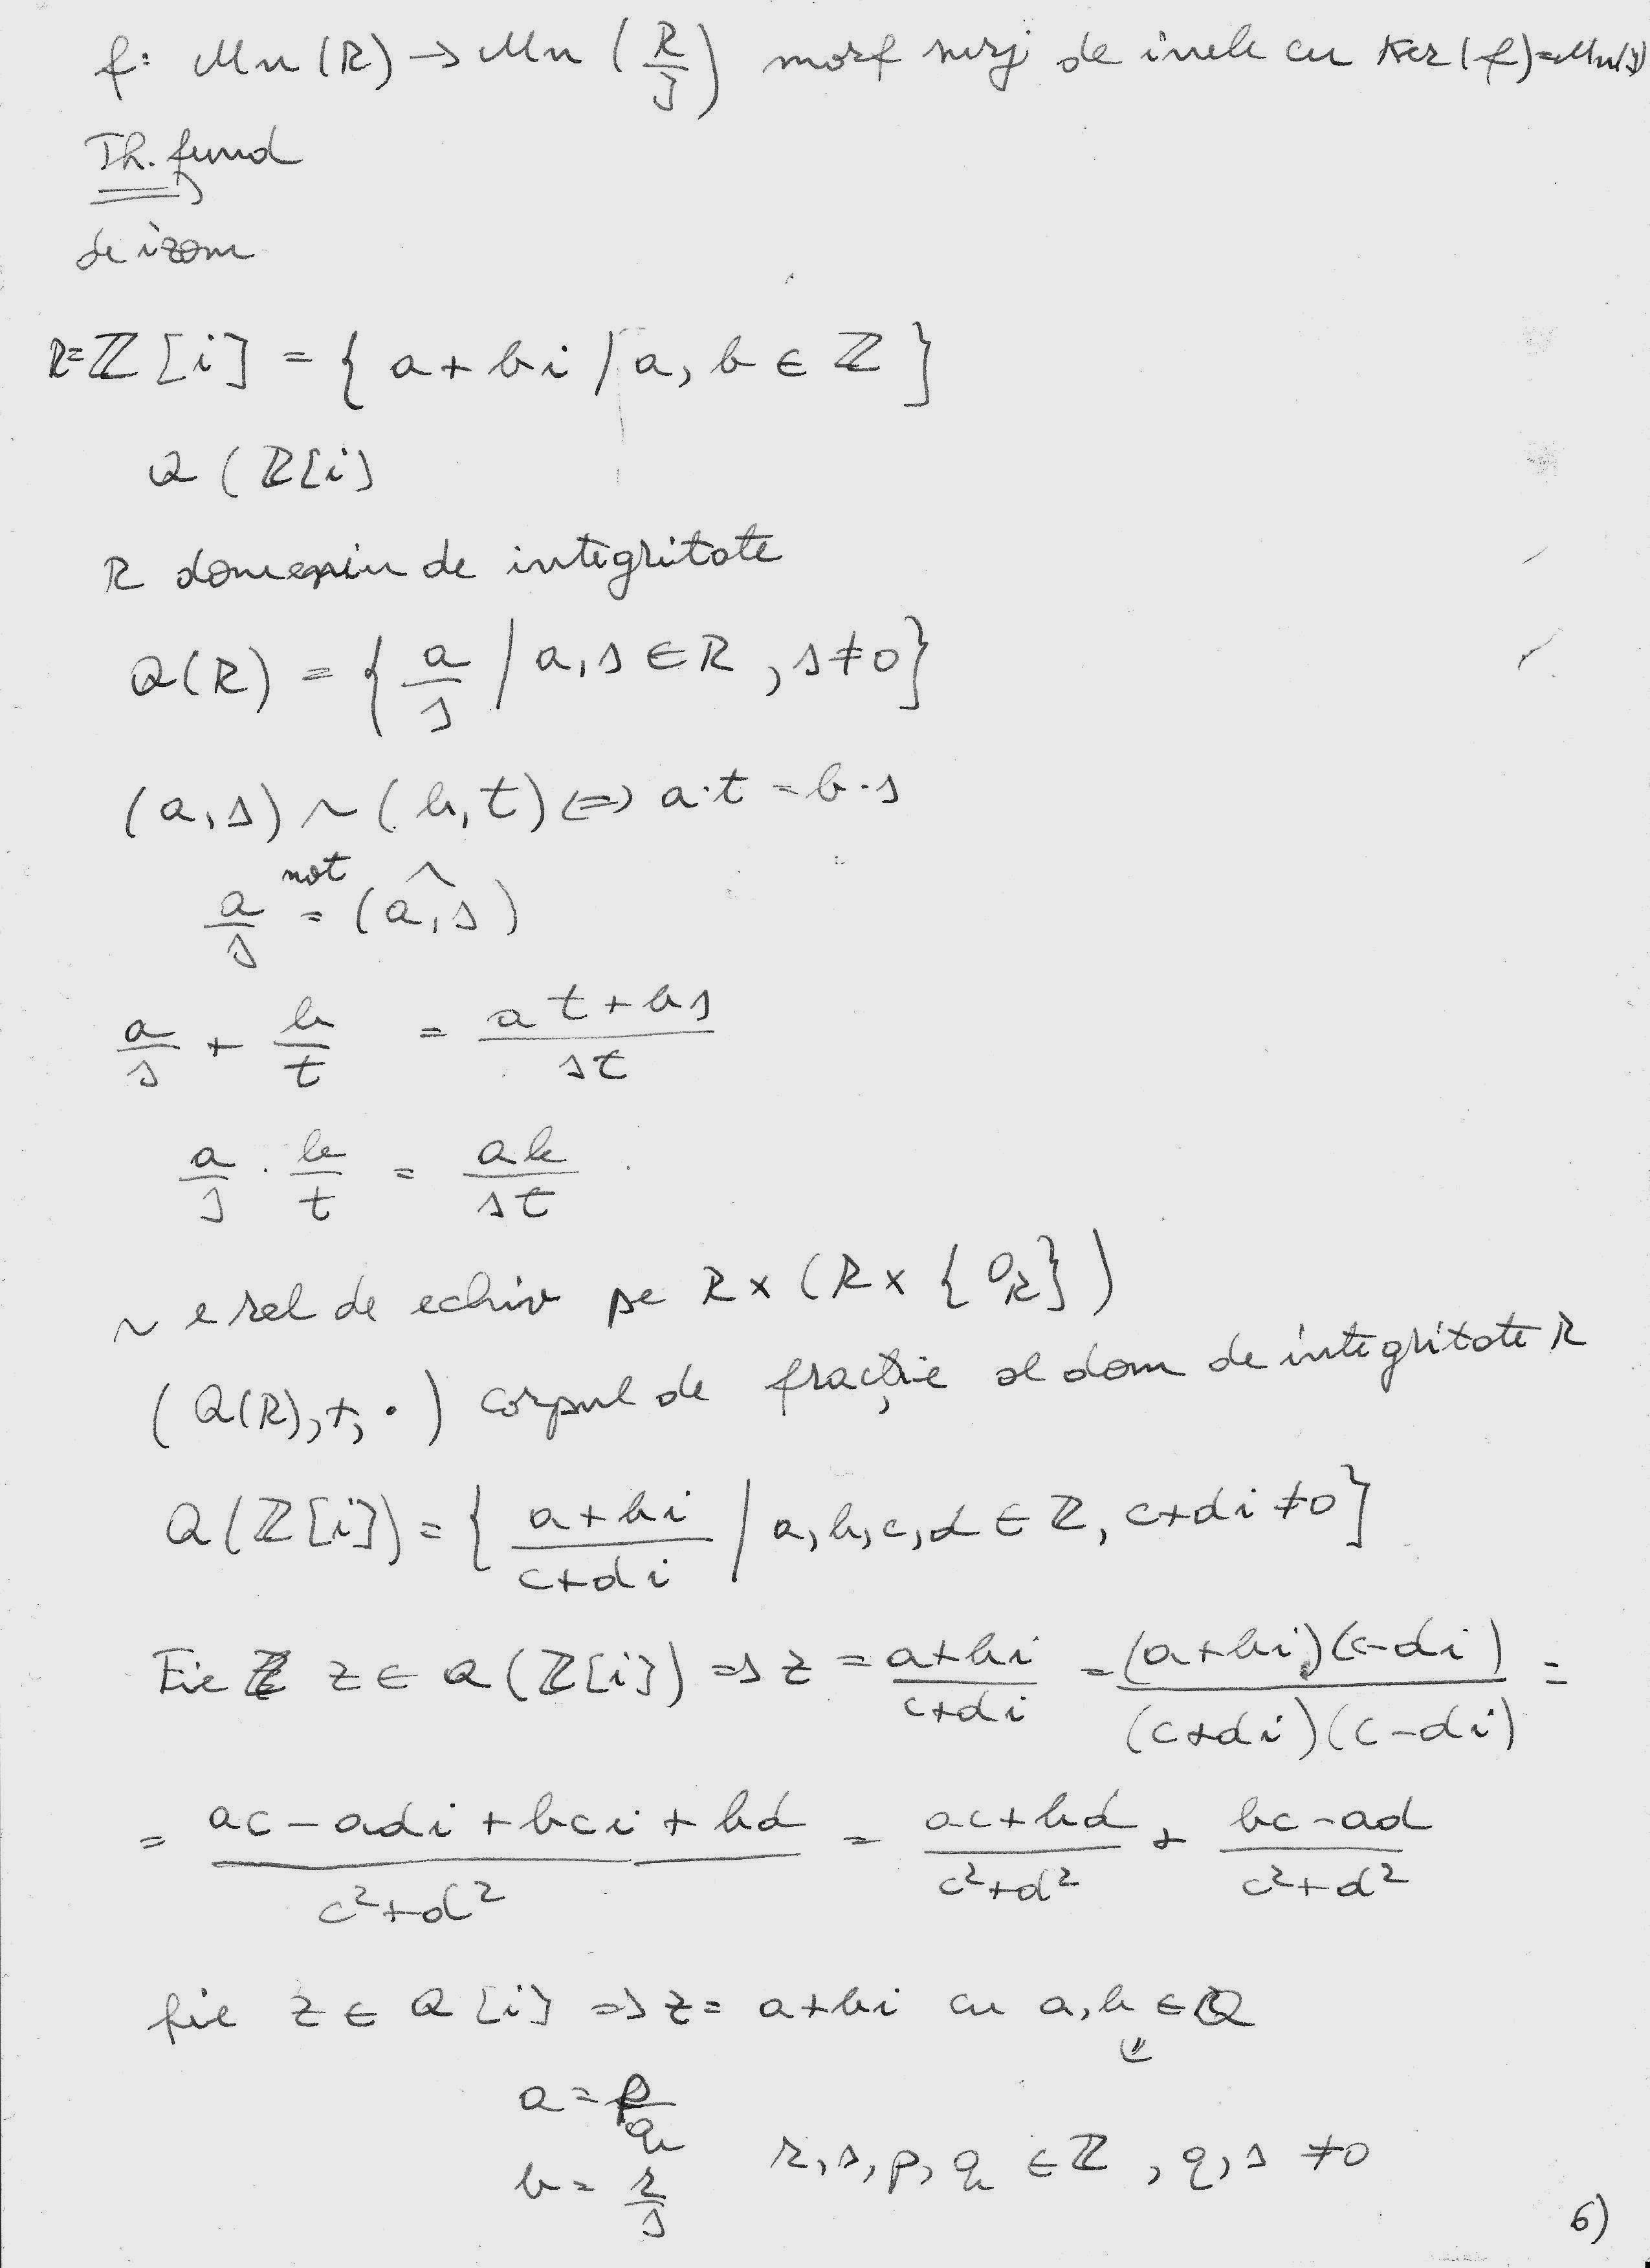 f: Mn(R) → Mn(R/J) morf surj de inele cu Ker(f)=Mn(J)
Th. fund
de izom
R=ℤ[i] = {a+bi / a, b ∈ ℤ}
Q(ℤ[i]
R domeniu de integritate
Q(R) = {a/s / a,s ∈ R, s≠0}
(a,s) ~ (b,t) ⇔ a·t = b·s
a/s not= (a,s)^
a/s + b/t = (at+bs)/st
a/s · b/t = ab/st
~ e rel de echiv pe R×(R×{0_R})
(Q(R),+,·) corpul de fracție al dom de integritate R
Q(ℤ[i]) = {(a+bi)/(c+di) / a,b,c,d ∈ ℤ, c+di ≠0}
Fie z ∈ Q(ℤ[i]) ⇒ z = (a+bi)/(c+di) = (a+bi)(c-di)/(c+di)(c-di) =
= (ac-adi+bci+bd)/(c²+d²) = (ac+bd)/(c²+d²) + (bc-ad)/(c²+d²)
fie z ∈ Q[i] ⇒ z = a+bi cu a,b ∈ Q
⇓
a = p/q
b = r/s r,s,p,q ∈ ℤ, q,s ≠0
6)